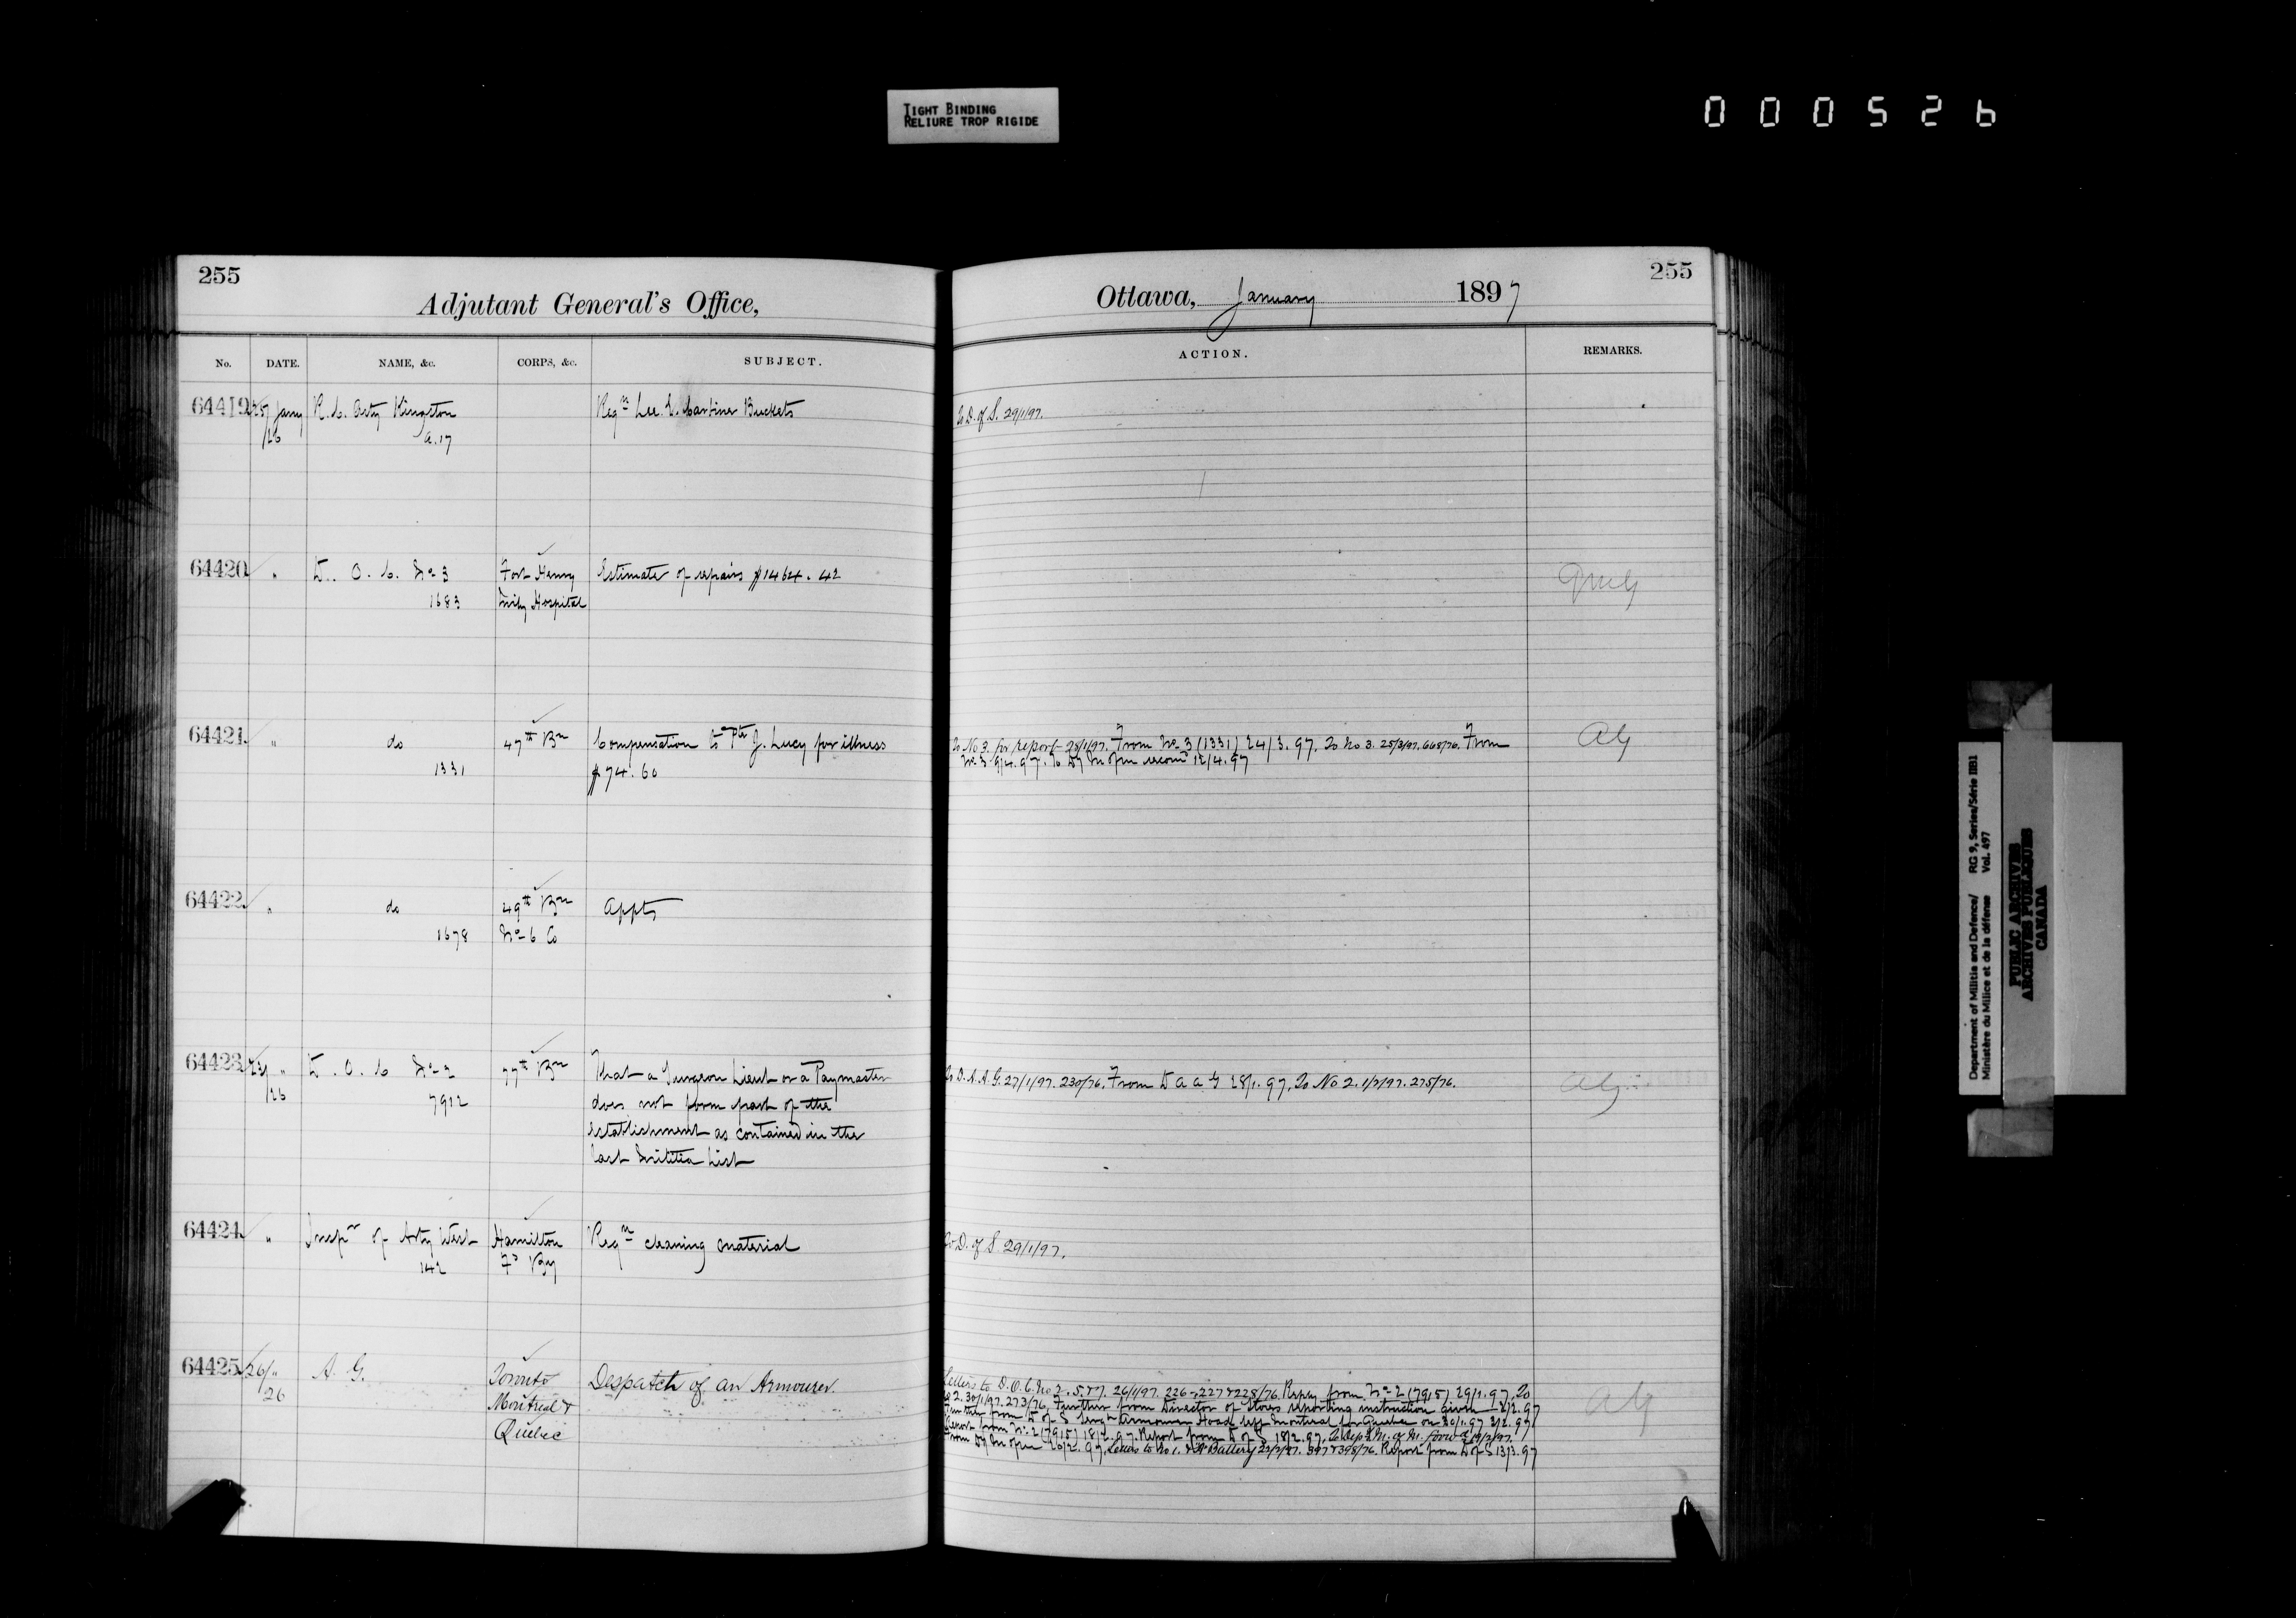 TIGHT BINDING
RELIURE TROP RIGIDE
000526
255
Adjutant General's Office,
No. DATE. NAME, &c. CORPS, &c. SUBJECT.
64419 25/Jany R. C. Arty Kingston Reqn Lee. E. Carbine Buckets
/26 A.17
64420 " D. O. C. No 3 Fort Henry Estimate of repairs $1464.42
1683 Mily Hospital
64421 " do 47th Bn Compensation to Pte J. Lucy for illness
1331 $74.60
64422 " do 49th Bn Appts
1678 No 6 Co
64423 23/" D. O. C No 2 77th Bn That a Surgeon Lieut or a Paymaster
/26 7912 does not form part of the
establishment as contained in the
last Militia List
64424 " Inspr of Arty West Hamilton Reqn cleaning material
142 Fd By
64425 26/" A. G. Toronto Despatch of an Armourer
26 Montreal &
Quebec
255
Ottawa, January 1897
ACTION. REMARKS.
To D. of S. 29/1/97.
QMG
To No 3. for report 28/1/97. From No 3 (1331) 24/3.97. To No 3. 25/3/97. 668/76. From AG
No 3 9/4.97. To Dy M of M recomn 12/4.97
To D.A.A.G. 27/1/97. 230/76. From D A A G 28/1.97. To No 2. 1/2/97. 275/76. AG
To D. of S 29/1/97.
Letters to D.O.C. No 2. 5. & 7. 26/1/97. 226-227 & 228/76. Reply from No 2 (7915) 29/1.97. To AG
No 2. 30/1/97. 273/76. Further from Director of Stores reporting instruction given 2/2.97
Further from D of S Armourer Hoad left Montreal for Quebec on 30/1.97 2/2.97
Report from No 2 (7915) 18/2.97. Report from D of S 18/2.97. To Dep. M. of M. 19/2/97.
From Dy M of M 20/2.97. Letters to No 1. & A Battery 22/2/97. 397 & 398/76. Report from D of S 13/3.97
Department of Militia and Defence/ RG 9, Series/Série IIB1
Ministère du Milice et de la défense Vol. 497
PUBLIC ARCHIVES
ARCHIVES PUBLIQUES
CANADA